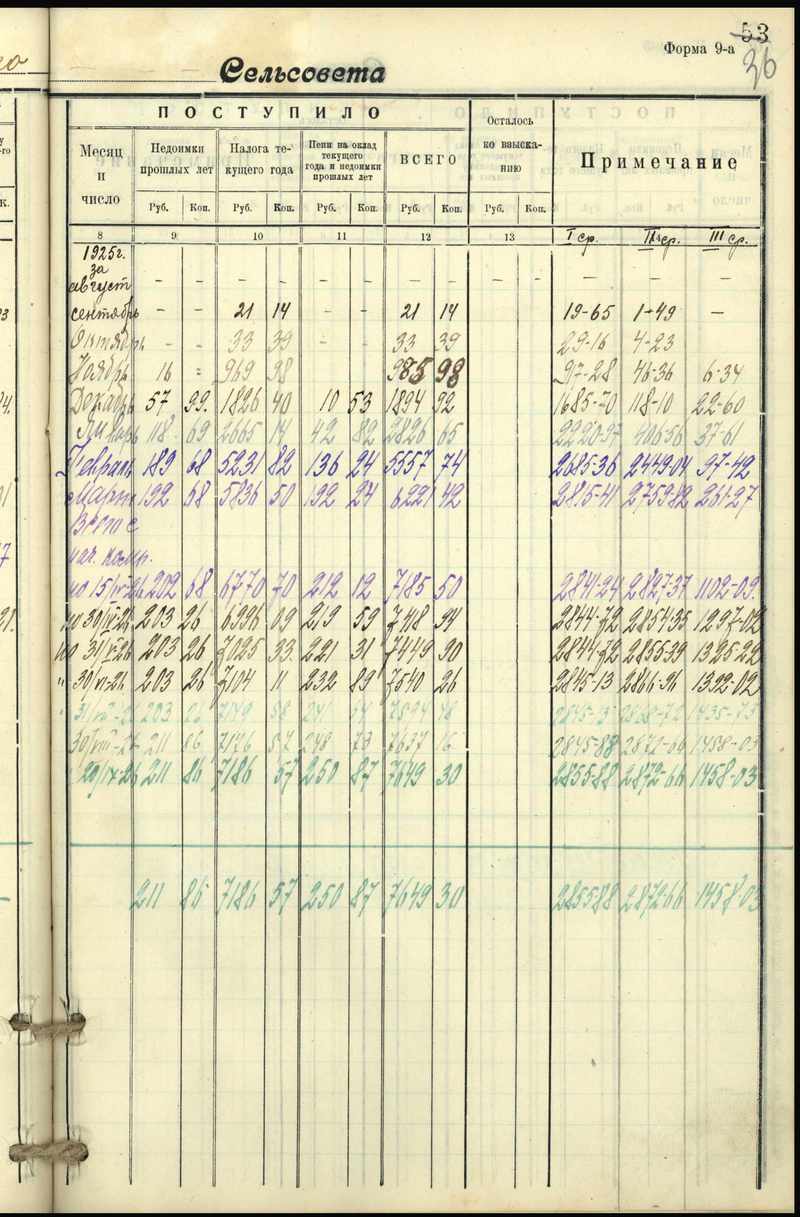 53
Форма 9-а
36
Сельсовета
ПОСТУПИЛО
Месяц и число
Недоимки прошлых лет
Налога текущего года
Пени на оклад текущего года и недоимки прошлых лет
ВСЕГО
Осталось ко взысканию
Примечание
Руб. Коп. Руб. Коп. Руб. Коп. Руб. Коп. Руб. Коп.
8 9 10 11 12 13 I ср. II ср. III ср.
1925г.
за
август – – – – – – – – – – –
сентябрь – – 21 14 – – 21 14 19-65 1-49 –
Октябрь – – 33 39 – – 33 39 29-16 4-23
Ноябрь 16 = 969 98 985 98 97-28 46-36 6-34
Декабрь 57 99. 1826 40 10 53 1894 92 1685-70 118-10 22-60
Январь 118 69 2665 14 42 82 2826 65 2220-97 406-56 37-61
Февраль 189 68 5231 82 136 24 5557 74 2685-36 2449-04 97-42
Март 192 68 5836 50 192 24 6221 42 2815-41 2759-82 261-27
Всего с
нач. комп.
по 15/IV-26 202 68 6770 70 212 12 7185 50 2841-24 2827-37 1102-09
по 30/IV-26 203 26 6996 09 219 59 7418 94 2844-72 2854-35 1297-02
по 31/V-26 203 26 7025 33 221 31 7449 90 2844-72 2855-39 1325-22
" 30/VI-26 203 26 7104 11 232 89 7540 26 2845-13 2866-96 1392-02
" 31/VII-26 203 26 7149 58 241 64 7594 48 2845-13 2868-72 1435-73
30/VIII-26 211 86 7176 57 248 73 7637 16 2845-88 2872-66 1458-03
20/IX-26 211 86 7186 57 250 87 7649 30 2855-88 2872-66 1458-03
211 86 7186 57 250 87 7649 30 2855 88 2872-66 1458-03